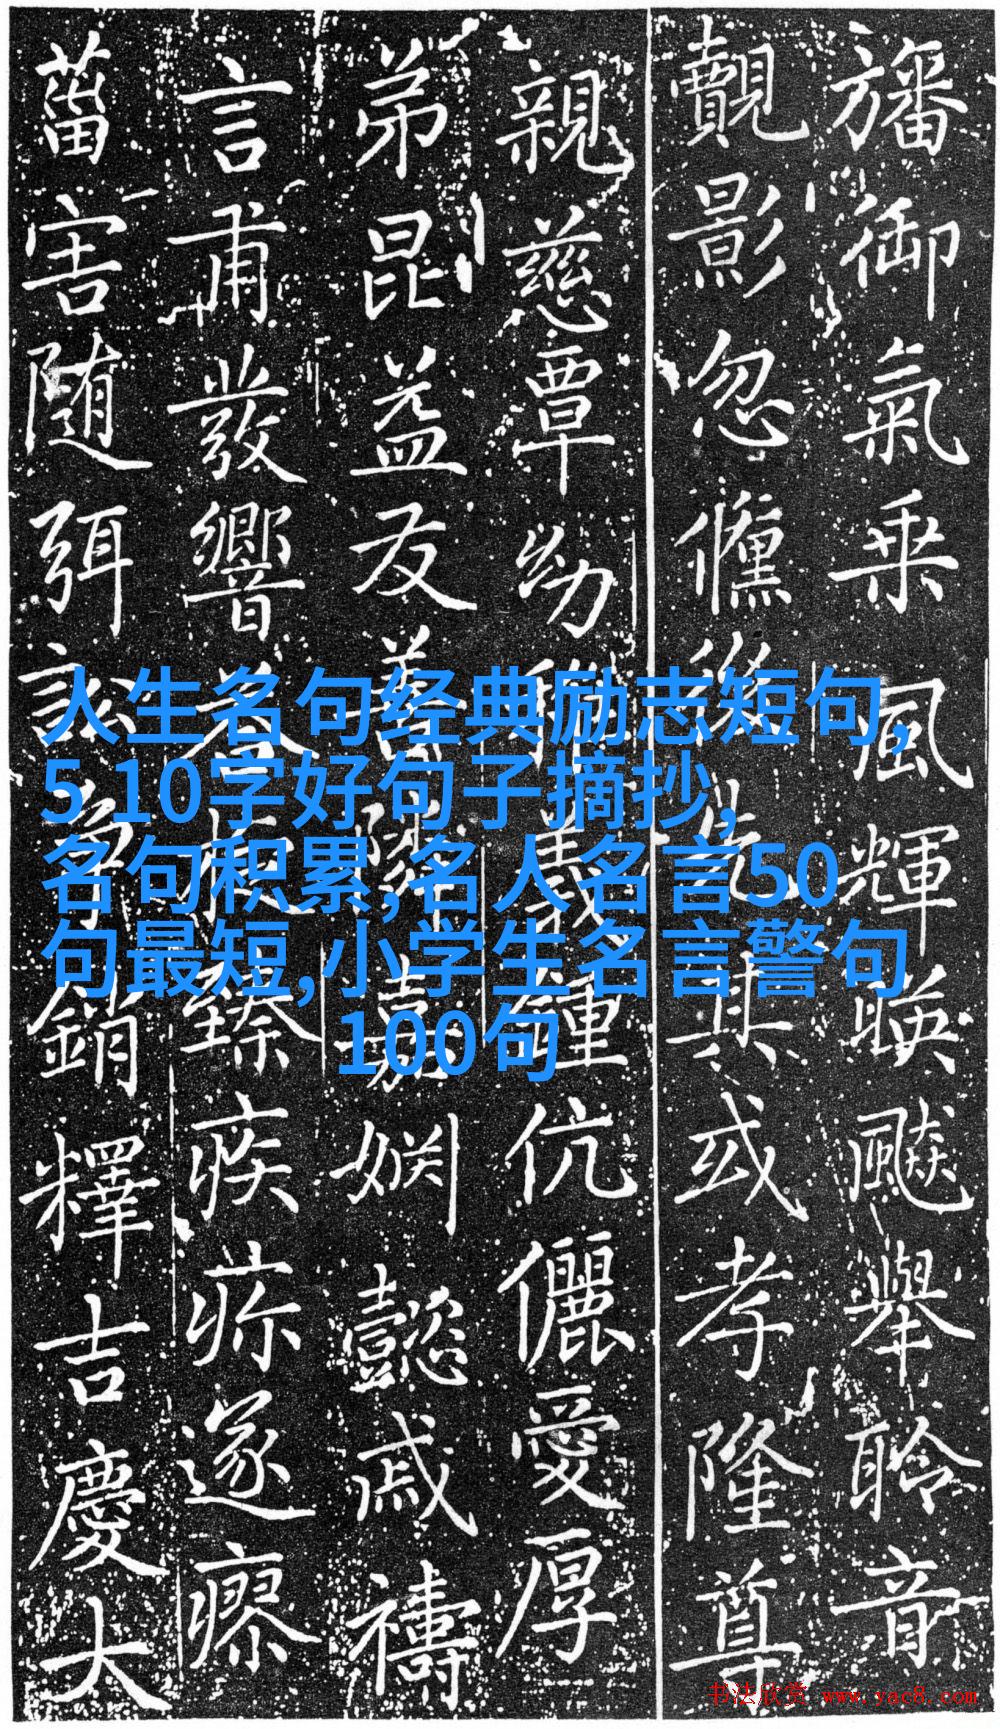 旛御氣乗風輝暎飈舉聆音
覿影忽後先其或孝隆尊
親慈覃幼義鍾伉儷愛厚
弟昆益友善隣嘉姻懿戚禱
言甫發響荅辰臻疾疹遂瘳
菑害随弭訟争銷釋吉慶大
人生名句经典励志短句,
5 10字好句子摘抄,
名句积累,名人名言50
句最短,小学生名言警句
100句
书法欣赏 www.yac8.com